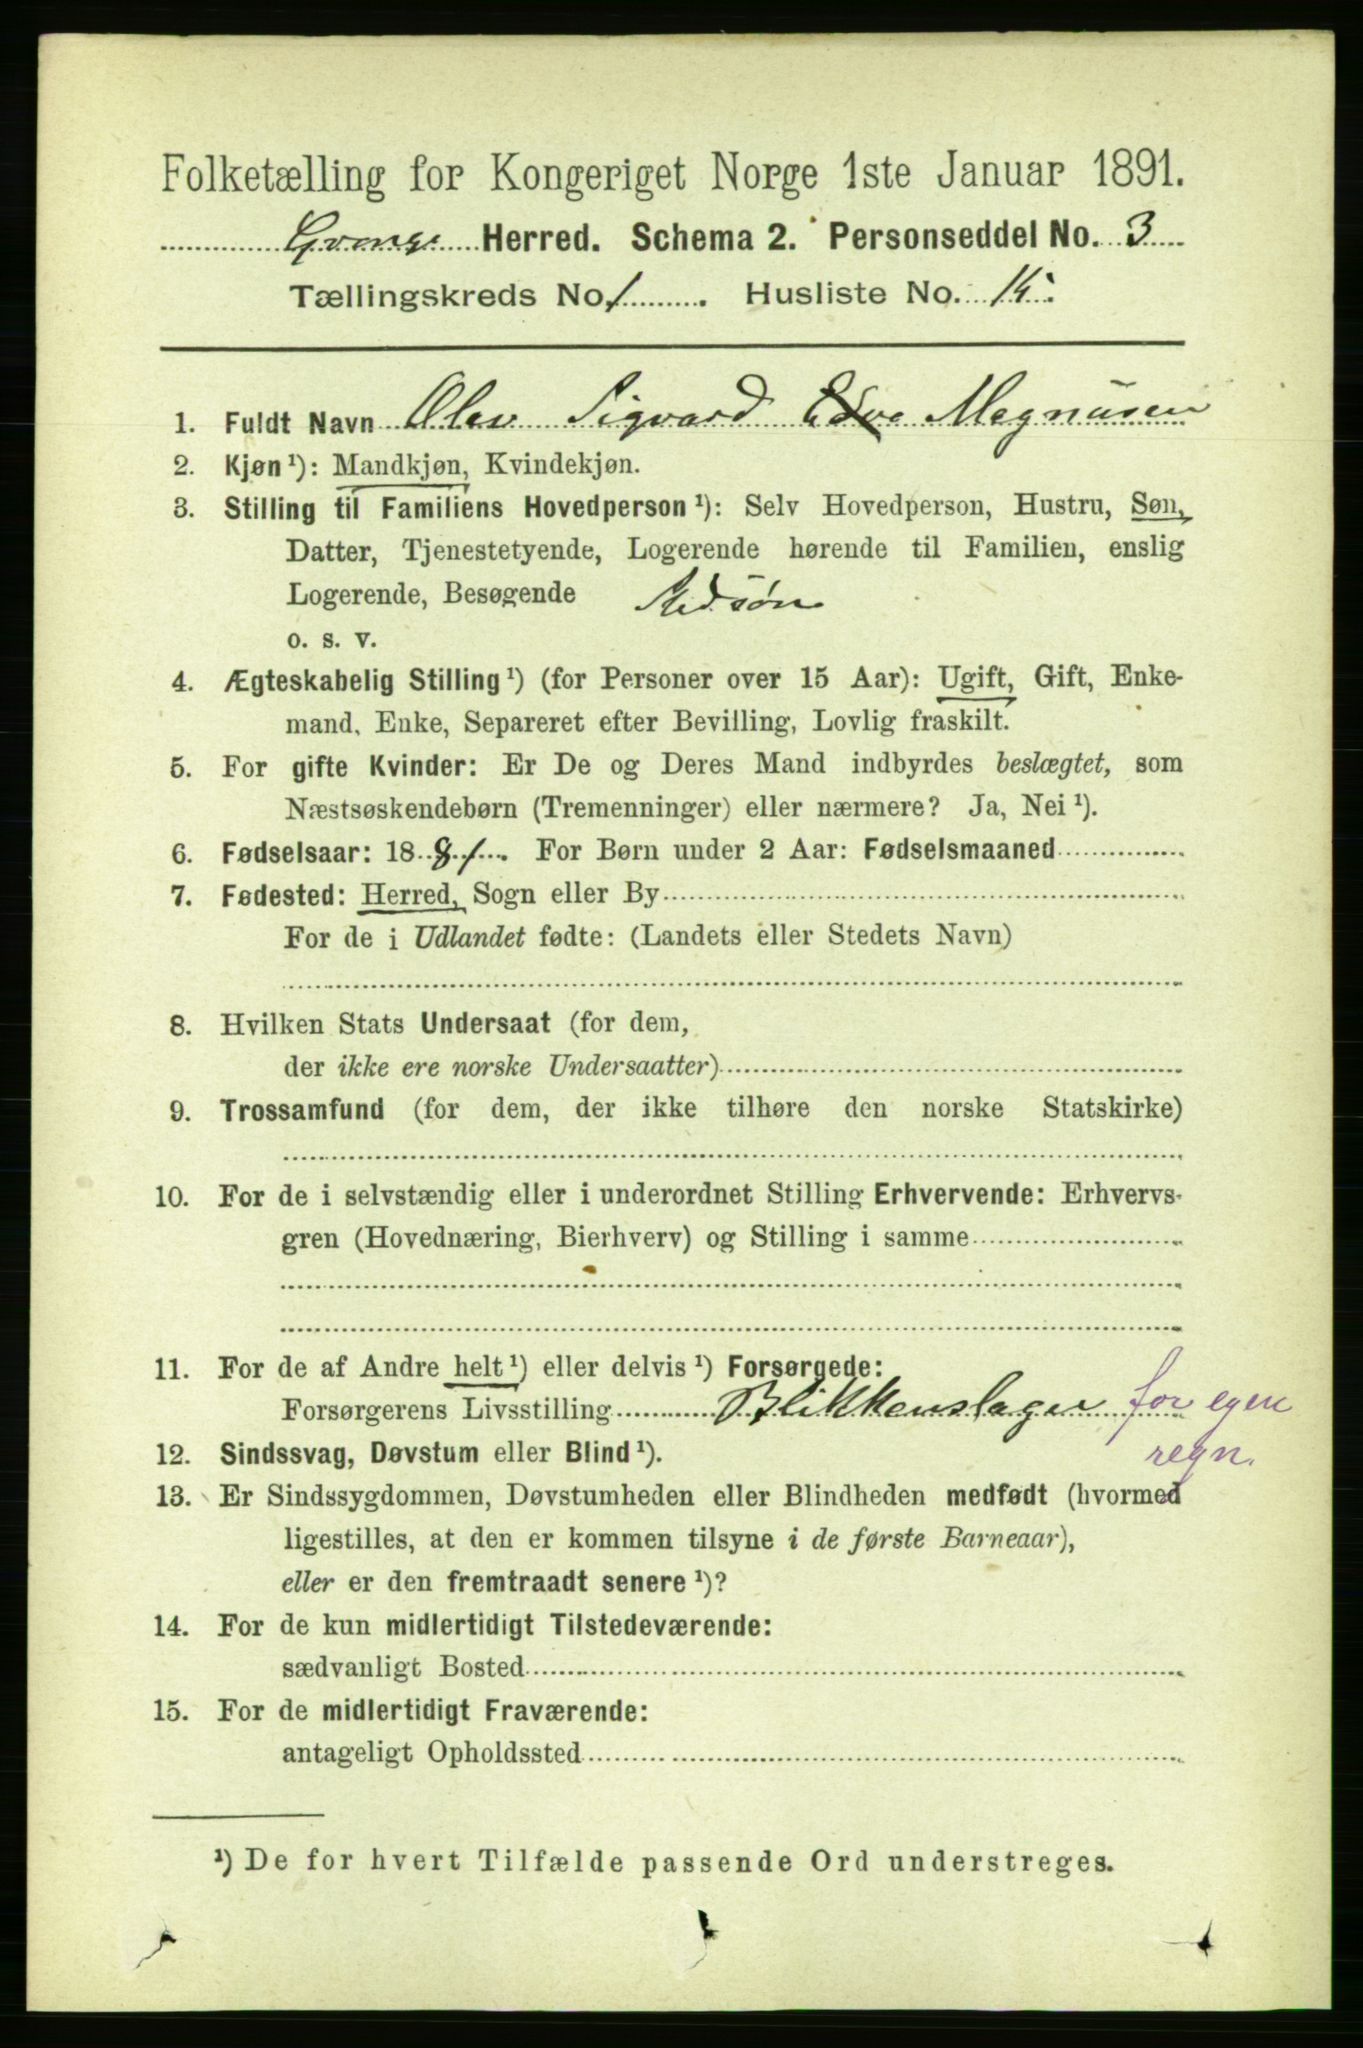 Folketælling for Kongeriget Norge 1ste Januar 1891.
Herred. Schema 2. Personseddel No. 3
Tællingskreds No. 1. Husliste No.
1. Fuldt Navn Olav Sigvard Magnüsen
2. Kjøn ¹): Mandkjøn, Kvindekjøn.
3. Stilling til Familiens Hovedperson ¹): Selv Hovedperson, Hustru, Søn,
Datter, Tjenestetyende, Logerende hørende til Familien, enslig
Logerende, Besøgende Stedsøn
o. s. v.
4. Ægteskabelig Stilling ¹) (for Personer over 15 Aar): Ugift, Gift, Enke-
mand, Enke, Separeret efter Bevilling, Lovlig fraskilt.
5. For gifte Kvinder: Er De og Deres Mand indbyrdes beslægtet, som
Næstsøskendebørn (Tremenninger) eller nærmere? Ja, Nei ¹).
6. Fødselsaar: 1881. For Børn under 2 Aar: Fødselsmaaned
7. Fødested: Herred, Sogn eller By
For de i Udlandet fødte: (Landets eller Stedets Navn)
8. Hvilken Stats Undersaat (for dem,
der ikke ere norske Undersaatter)
9. Trossamfund (for dem, der ikke tilhøre den norske Statskirke)
10. For de i selvstændig eller i underordnet Stilling Erhvervende: Erhvervs-
gren (Hovednæring, Bierhverv) og Stilling i samme
11. For de af Andre helt ¹) eller delvis ¹) Forsørgede:
Forsørgerens Livsstilling Blikkenslager for egen
regn.
12. Sindssvag, Døvstum eller Blind ¹).
13. Er Sindssygdommen, Døvstumheden eller Blindheden medfødt (hvormed
ligestilles, at den er kommen tilsyne i de første Barneaar),
eller er den fremtraadt senere ¹)?
14. For de kun midlertidigt Tilstedeværende:
sædvanligt Bosted
15. For de midlertidigt Fraværende:
antageligt Opholdssted
¹) De for hvert Tilfælde passende Ord understreges.